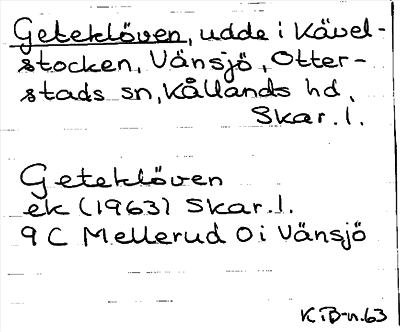 Geteklöven, udde i Kävel-
stocken, Vänsjö, Otter-
stads sn, Kållands hd,
Skar. l.
Geteklöven
ek (1963) Skar. l.
9 C Mellerud O i Vänsjö
KTB-n. 63